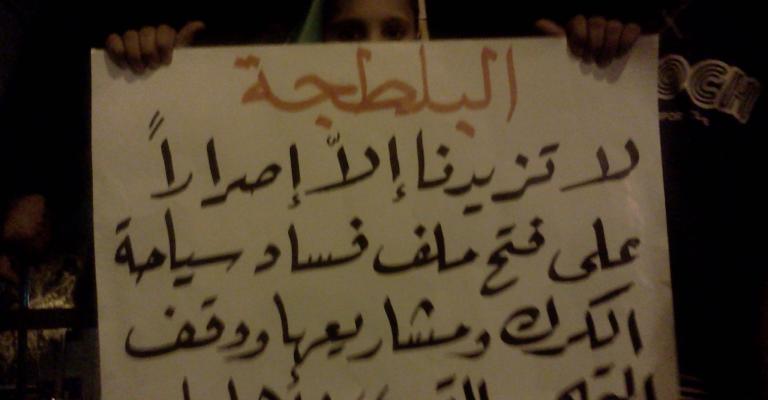 البلطجة
لا تزيدنا إلاّ إصراراً
على فتح ملف فساد سياحة
الكرك ومشاريعها ووقف
OCH